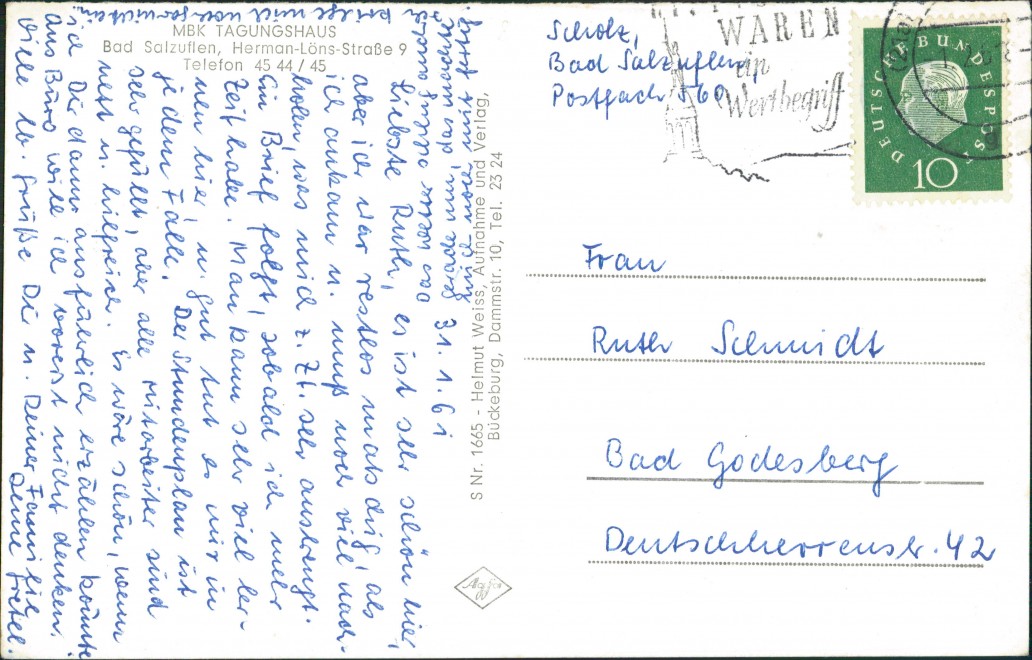 MBK TAGUNGSHAUS
Bad Salzuflen, Herman-Löns-Straße 9
Telefon 45 44 / 45
31.1.61
Liebste Ruth, es ist sehr schön hier,
aber ich war restlos matsch als
ich ankam u. muß noch viel nach-
holen, was mich z. Zt. sehr anstrengt.
Ein Brief folgt, sobald ich mehr
Zeit habe. Man kann sehr viel ler-
nen hier u. gut tut es mir in
jedem Falle. Der Stundenplan ist
sehr gefüllt, aber alle Mitarbeiter sind
nett u. hilfreich. Es wäre schön, wenn
ich Dir dann ausführlich erzählen könnte
ans Büro will ich vorerst nicht denken.
Viele lb. Grüße Dir u. Deiner Familie
Deine Gretel.
S Nr. 1665 - Helmut Weiss, Aufnahme und Verlag,
Bückeburg, Dammstr. 10, Tel. 23 24
Agfa
Scholz,
Bad Salzuflen
Postfach 560
WAREN
ein
Wertbegriff
DEUTSCHE BUNDESPOST
10
Frau
Ruth Schmidt
Bad Godesberg
Deutschherrenstr. 42